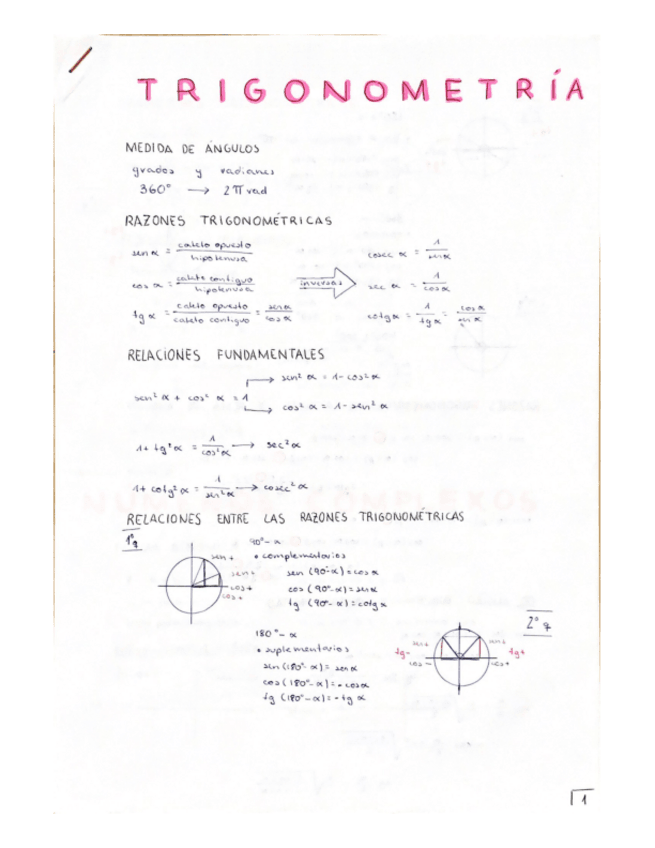 TRIGONOMETRÍA
MEDIDA DE ÁNGULOS
grados y radianes
360° → 2π rad
RAZONES TRIGONOMÉTRICAS
sen α = cateto opuesto / hipotenusa
cosec α = 1 / sen α
cos α = cateto contiguo / hipotenusa
inversas
sec α = 1 / cos α
tg α = cateto opuesto / cateto contiguo = sen α / cos α
cotg α = 1 / tg α = cos α / sen α
RELACIONES FUNDAMENTALES
sen² α = 1 - cos² α
sen² α + cos² α = 1
cos² α = 1 - sen² α
1 + tg² α = 1 / cos² α → sec² α
1 + cotg² α = 1 / sen² α → cosec² α
RELACIONES ENTRE LAS RAZONES TRIGONOMÉTRICAS
1º q
90° - α
• complementarios
sen +
sen +
cos +
cos +
sen (90° - α) = cos α
cos (90° - α) = sen α
tg (90° - α) = cotg α
180° - α
• suplementarios
sen (180° - α) = sen α
cos (180° - α) = - cos α
tg (180° - α) = - tg α
2º q
sen +
sen +
tg -
tg +
cos -
cos +
1